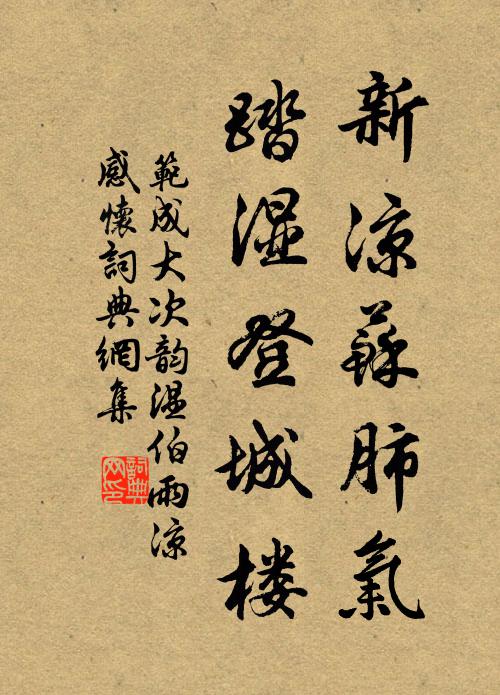 新凉蘇肺氣
踏湿登城楼
範成大次韵温伯雨凉
感懷詞典網集
詞典网印